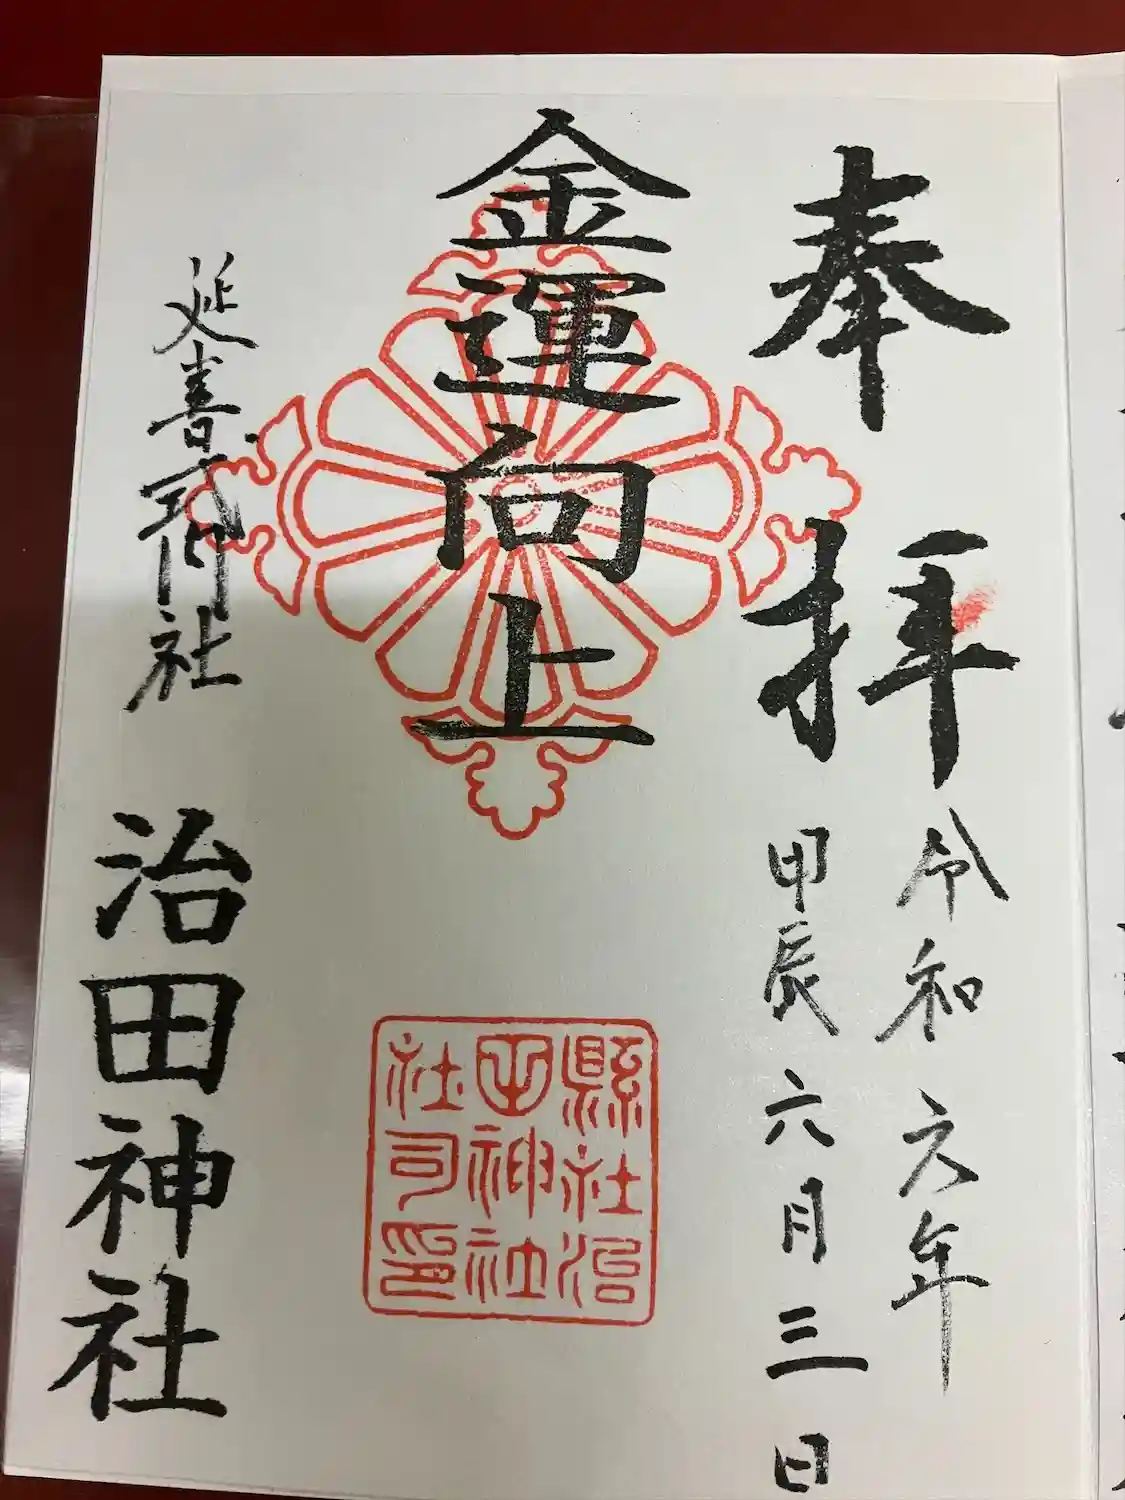 奉拝
令和六年
甲辰六月三日
金運向上
縣社治
田神社
社司印
延喜式内社
治田神社